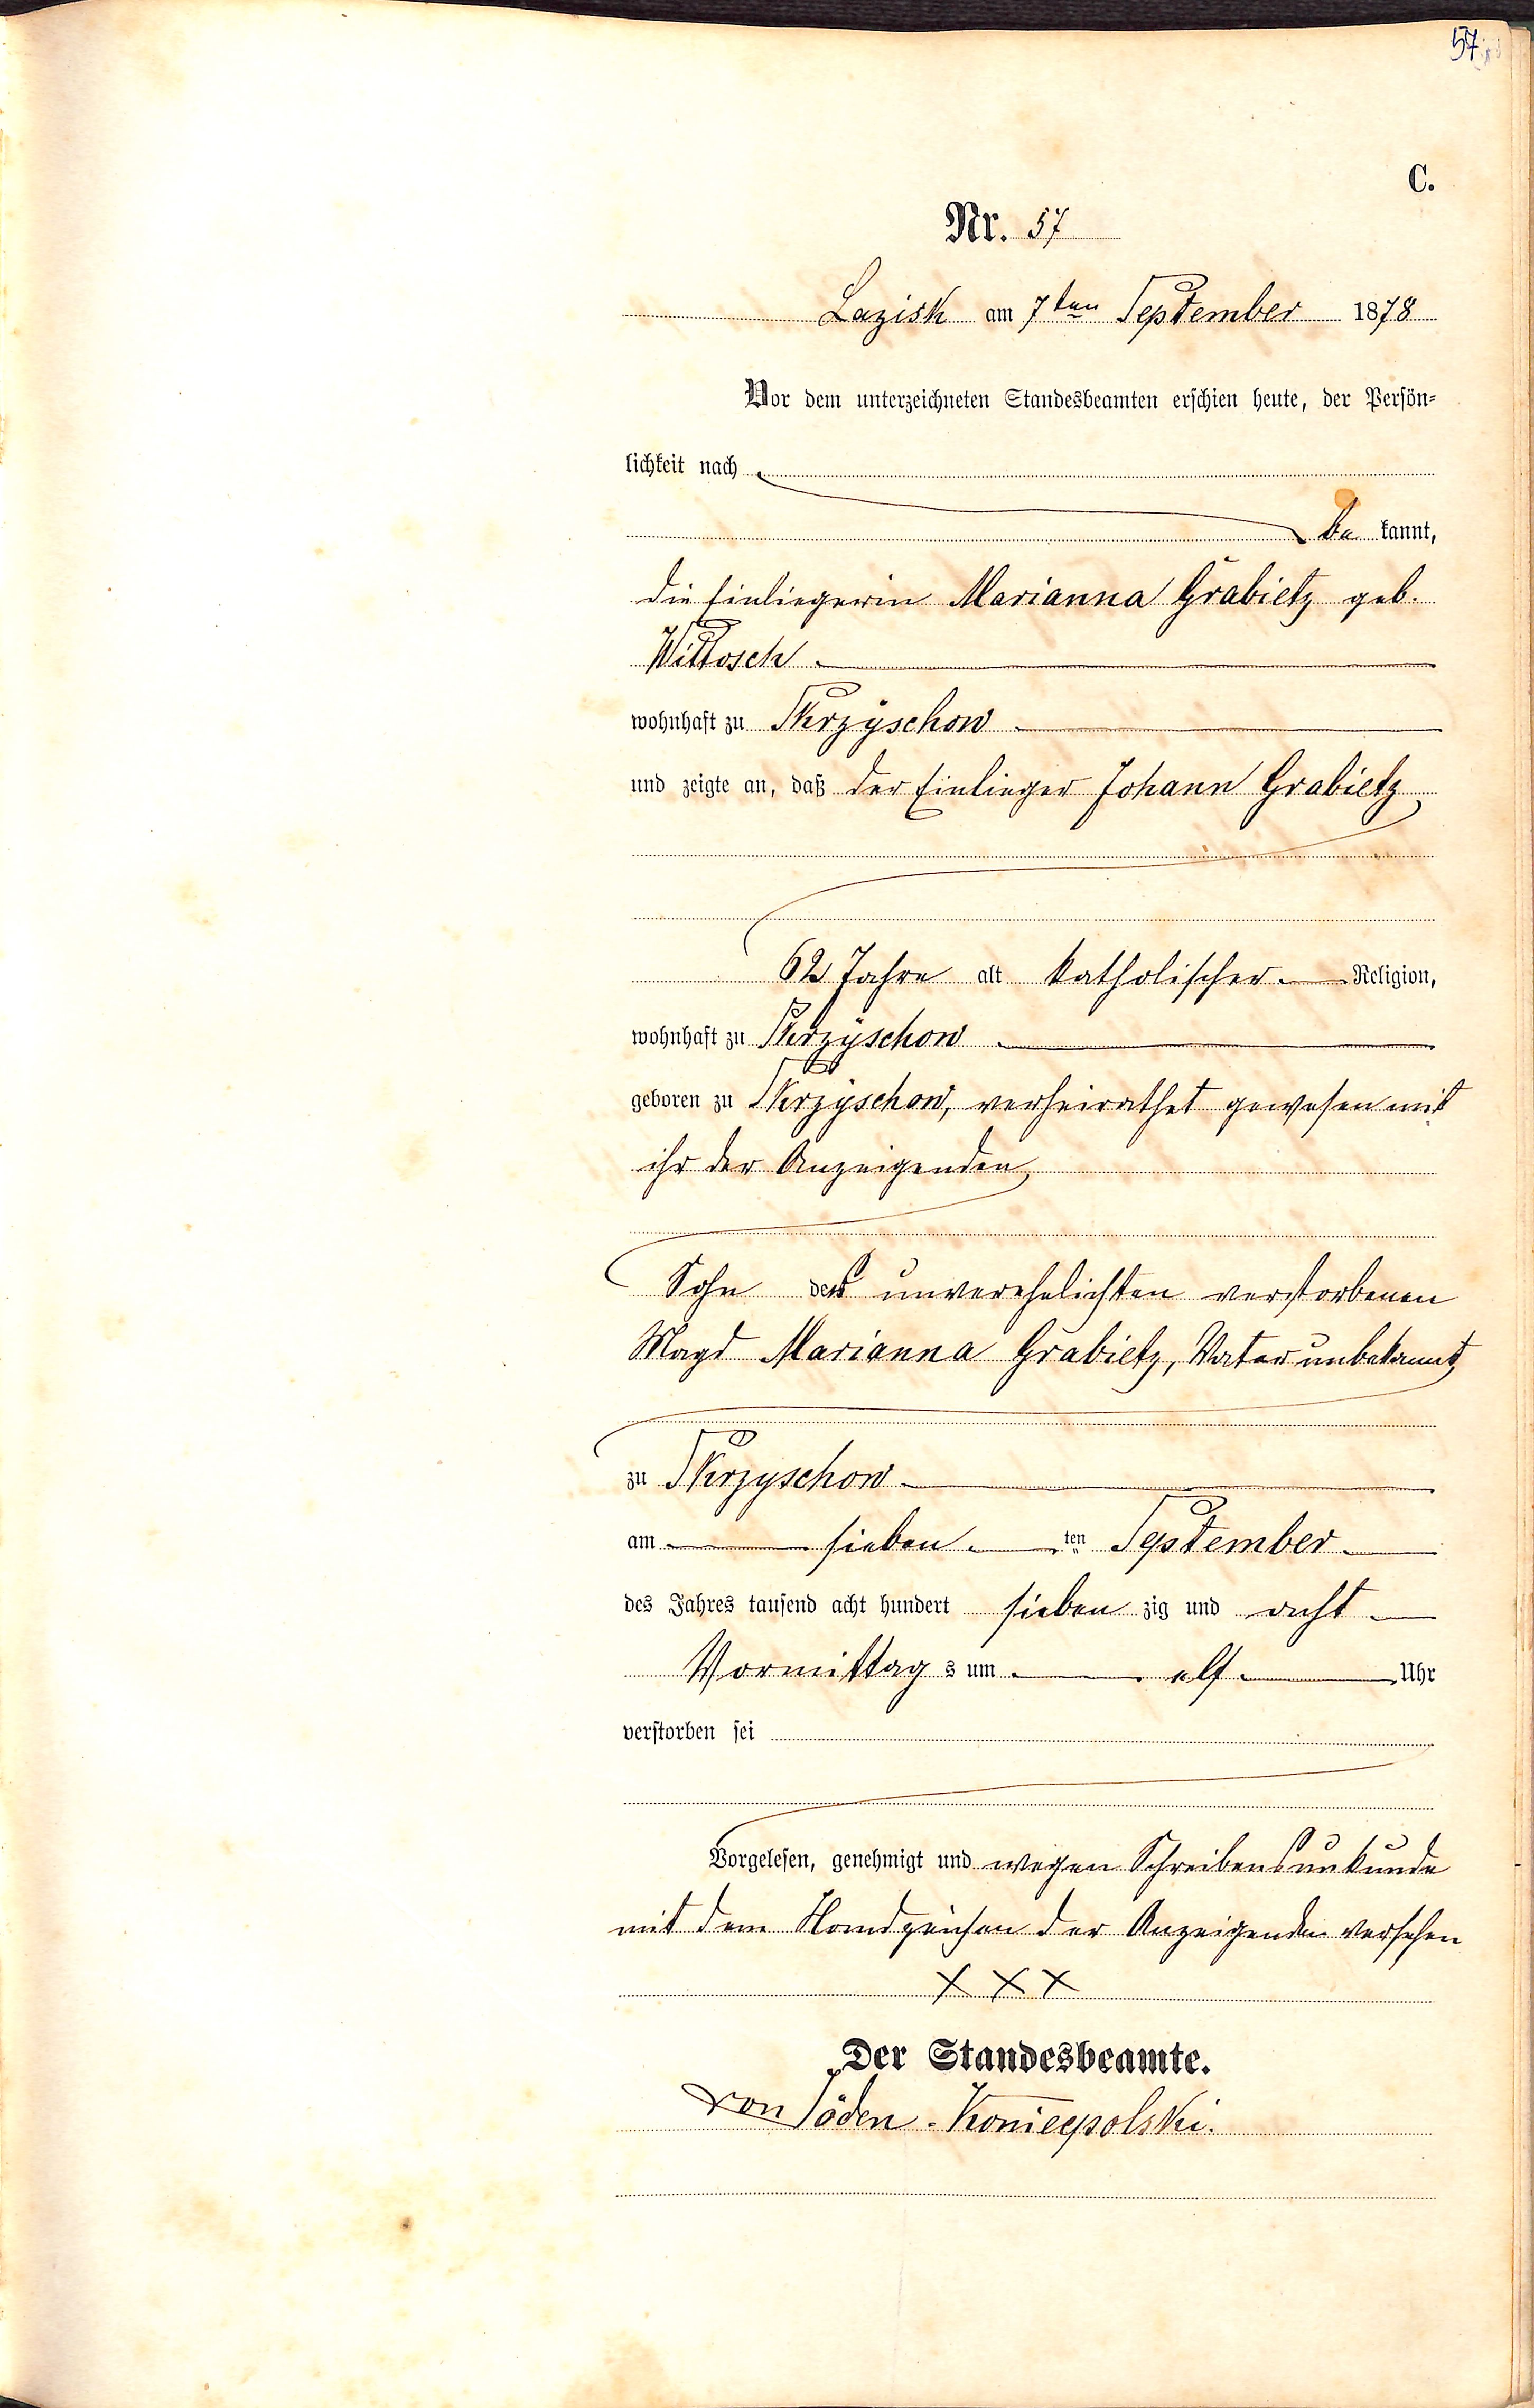 57
C.
Nr. 57
Lazisk am 7ten September 1878
Vor dem unterzeichneten Standesbeamten erschien heute, der Persön-
lichkeit nach
be kannt,
die Einliegerin Marianna Grabietz geb.
Wittosch
wohnhaft zu Skrzyschow
und zeigte an, daß der Einlieger Johann Grabietz
62 Jahre alt katholischer Religion,
wohnhaft zu Skrzyschow
geboren zu Skrzyschow, verheirathet gewesen mit
ihr der Anzeigenden
Sohn der unverehelichten verstorbenen
Magd Marianna Grabietz, Vater unbekannt,
zu Skrzyschow
am sieben ten September
des Jahres tausend acht hundert sieben zig und acht
Vormittag s um elf Uhr
verstorben sei
Vorgelesen, genehmigt und wegen Schreibensunkunde
mit dem Handzeichen der Anzeigenden versehen
XXX
Der Standesbeamte.
von Jöden-Koniecpolski.